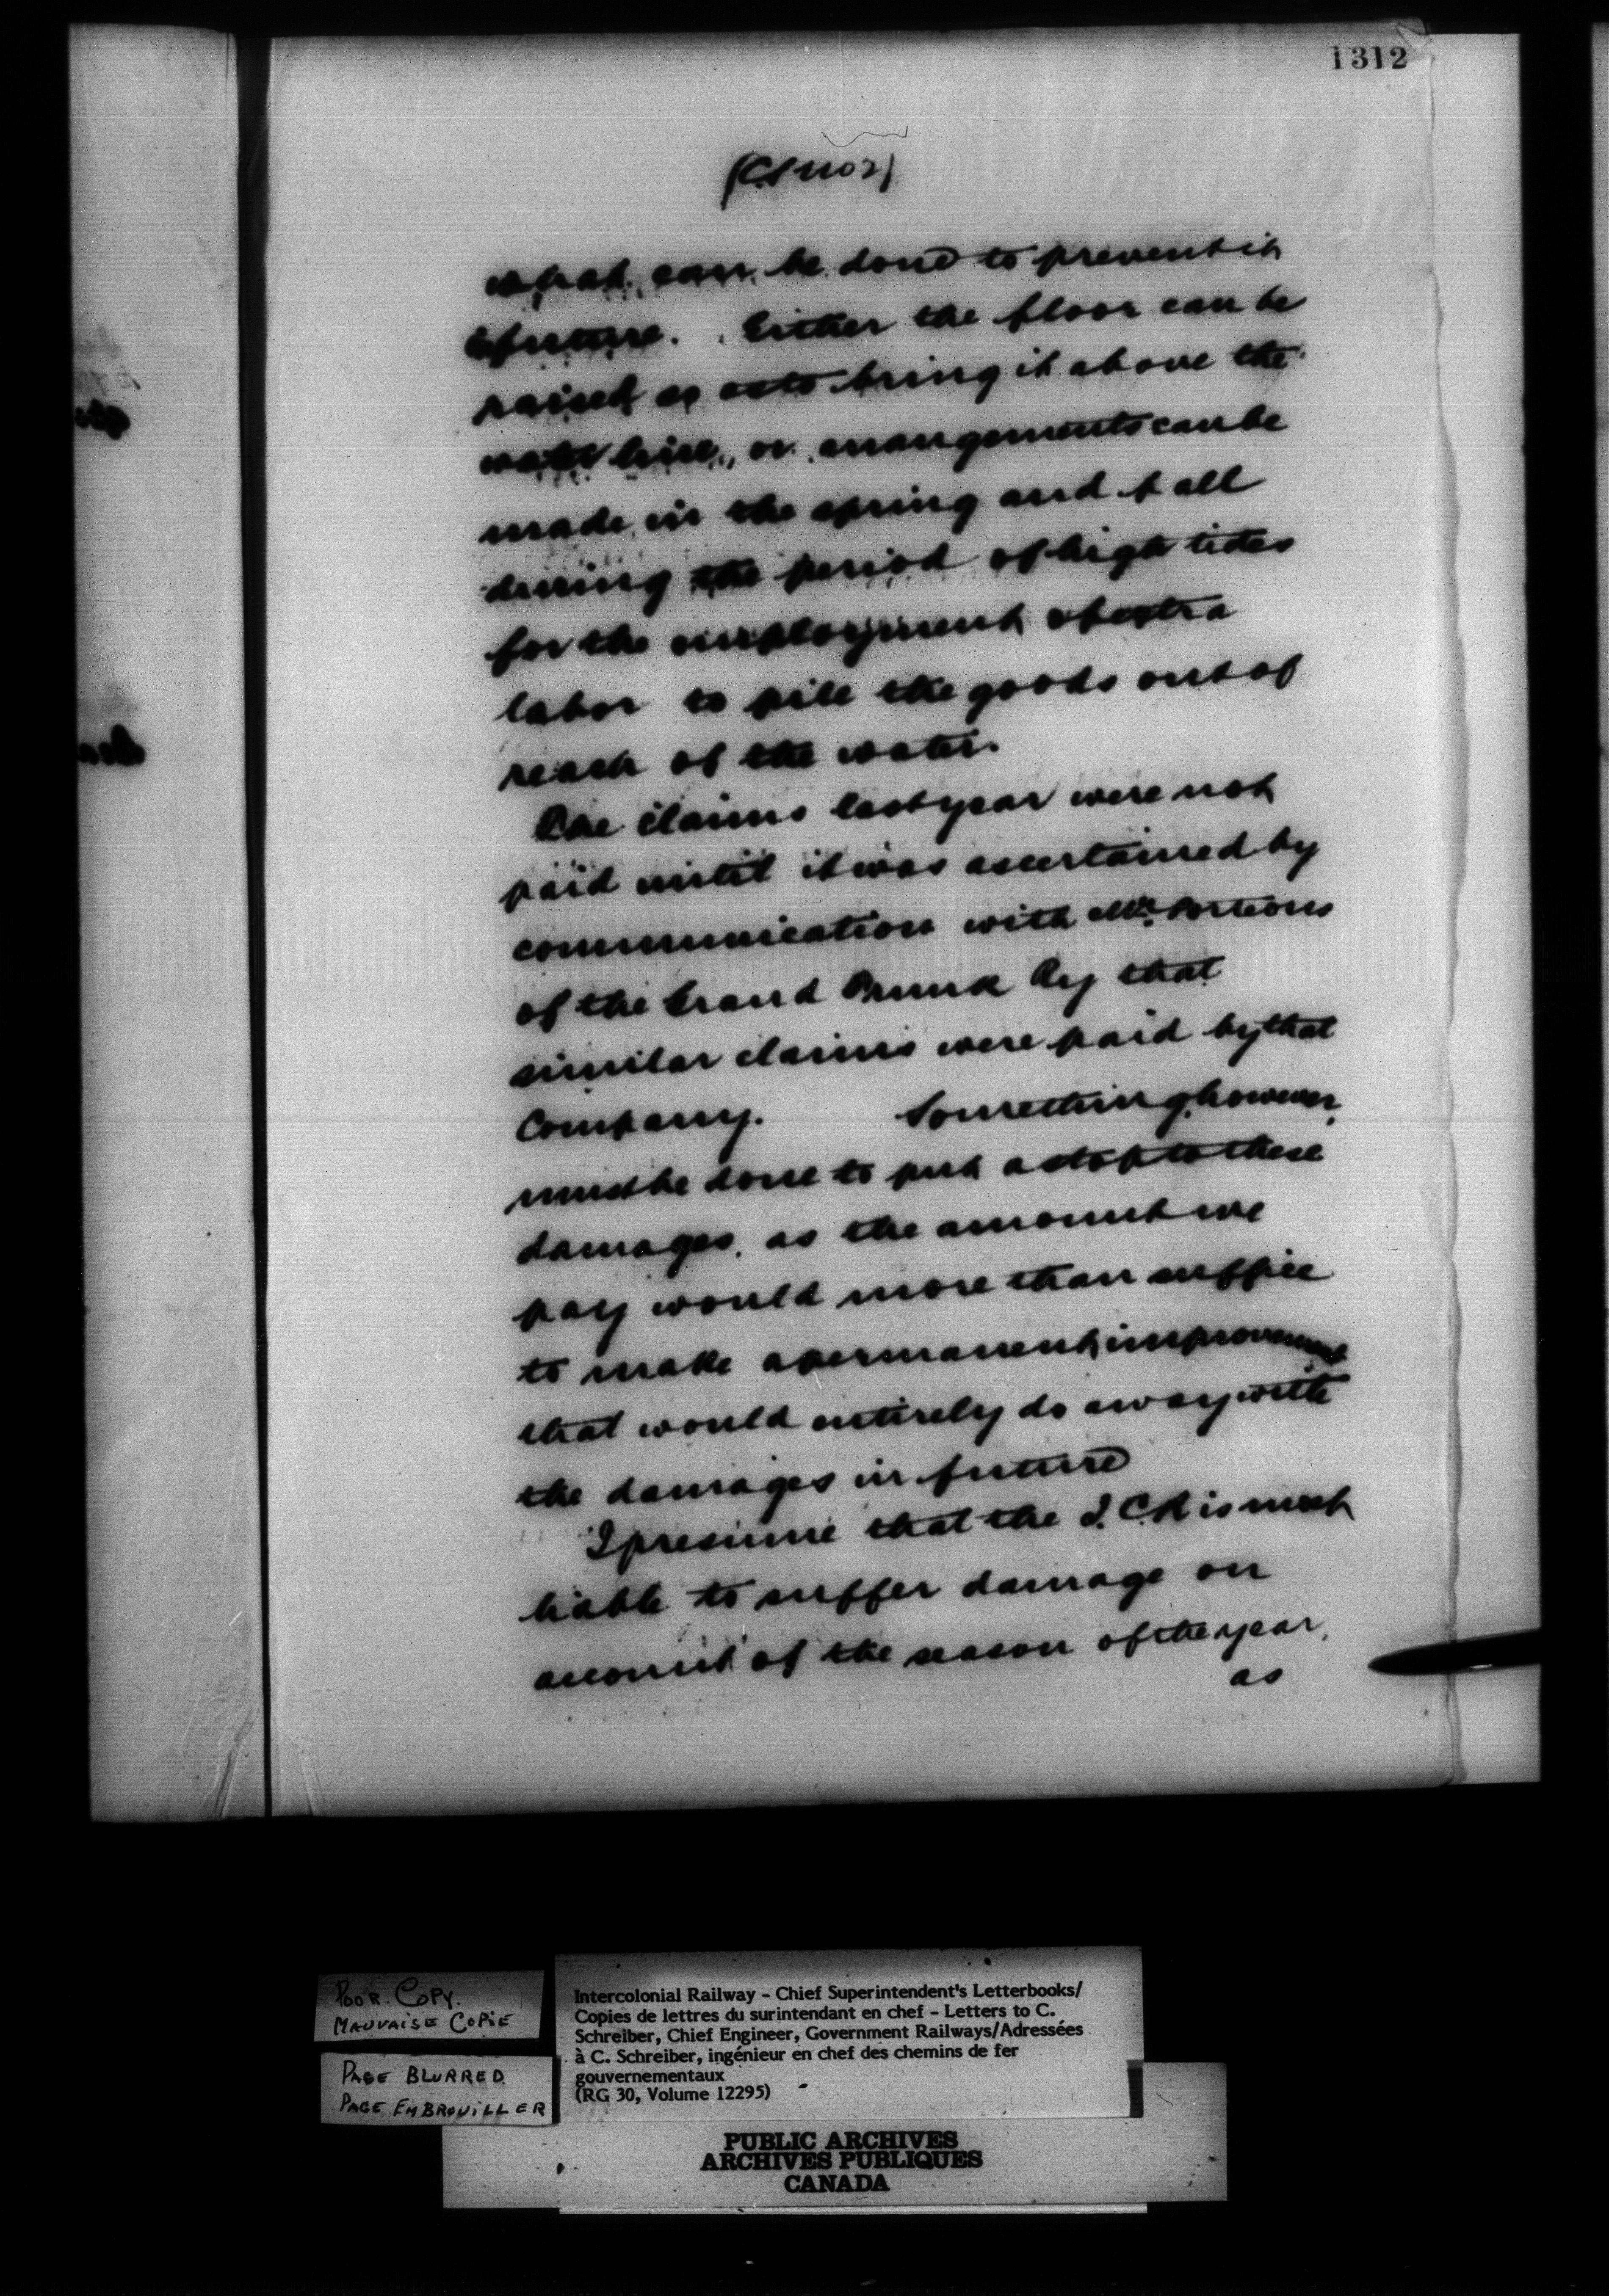 1312
(CS no 2)
what can be done to prevent it
future. Either the floor can be
raised so as to bring it above the
water line, or arrangements can be
made in the spring and fall
during the period of high tides
for the employment of extra
labor to pile the goods out of
reach of the water.
The claims last year were not
paid until it was ascertained by
communication with Mr. Porteous
of the Grand Trunk Ry that
similar claims were paid by that
Company. Something, however,
must be done to put a stop to these
damages, as the amount we
pay would more than suffice
to make a permanent improvement
that would entirely do away with
the damages in future
I presume that the I.C.R is most
liable to suffer damage on
account of the season of the year,
as
POOR. COPY.
MAUVAISE COPIE
PAGE BLURRED
PAGE EMBROUILLER
Intercolonial Railway – Chief Superintendent's Letterbooks/
Copies de lettres du surintendant en chef – Letters to C.
Schreiber, Chief Engineer, Government Railways/Adressées
à C. Schreiber, ingénieur en chef des chemins de fer
gouvernementaux
(RG 30, Volume 12295)
PUBLIC ARCHIVES
ARCHIVES PUBLIQUES
CANADA